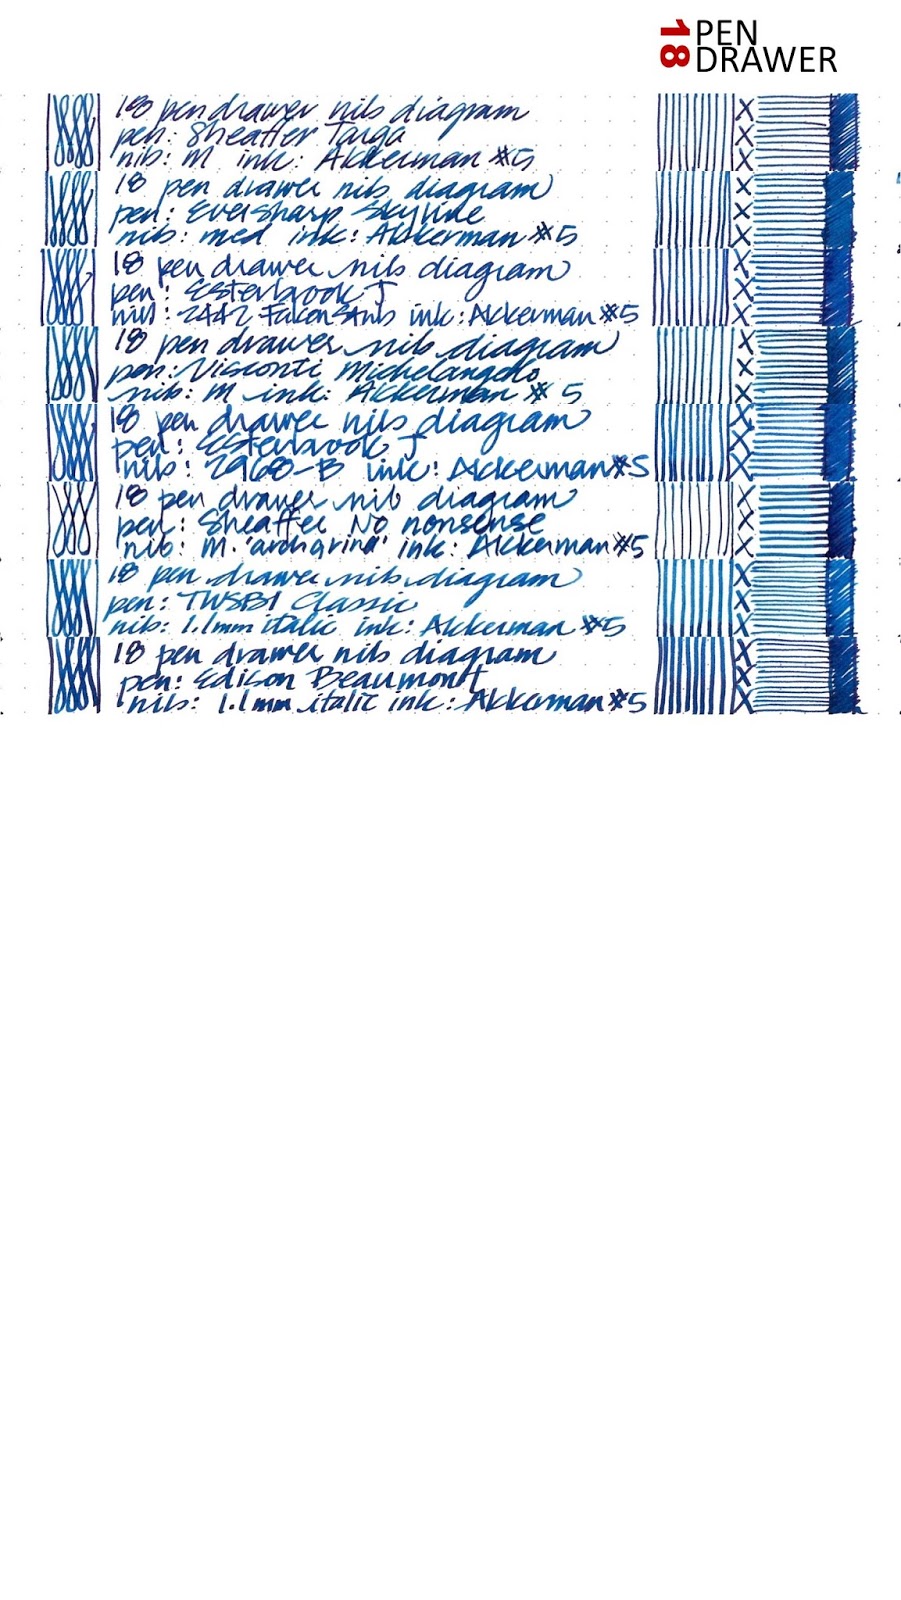 18 PEN
DRAWER
18 pen drawer nib diagram
pen: Sheaffer Targa
nib: M ink: Akkerman #5
18 pen drawer nib diagram
pen: Eversharp Skyline
nib: med ink: Akkerman #5
18 pen drawer nib diagram
pen: Esterbrook J
nib: 2442 Falcon Stub ink: Akkerman #5
18 pen drawer nib diagram
pen: Visconti Michelangelo
nib: M ink: Akkerman #5
18 pen drawer nib diagram
pen: Esterbrook J
nib: 2968-B ink: Akkerman #5
18 pen drawer nib diagram
pen: Sheaffer No nonsense
nib: M. ink: Akkerman #5
18 pen drawer nib diagram
pen: TWSBI Classic
nib: 1.1mm italic ink: Akkerman #5
18 pen drawer nib diagram
pen: Edison Beaumont
nib: 1.1mm italic ink: Akkerman #5